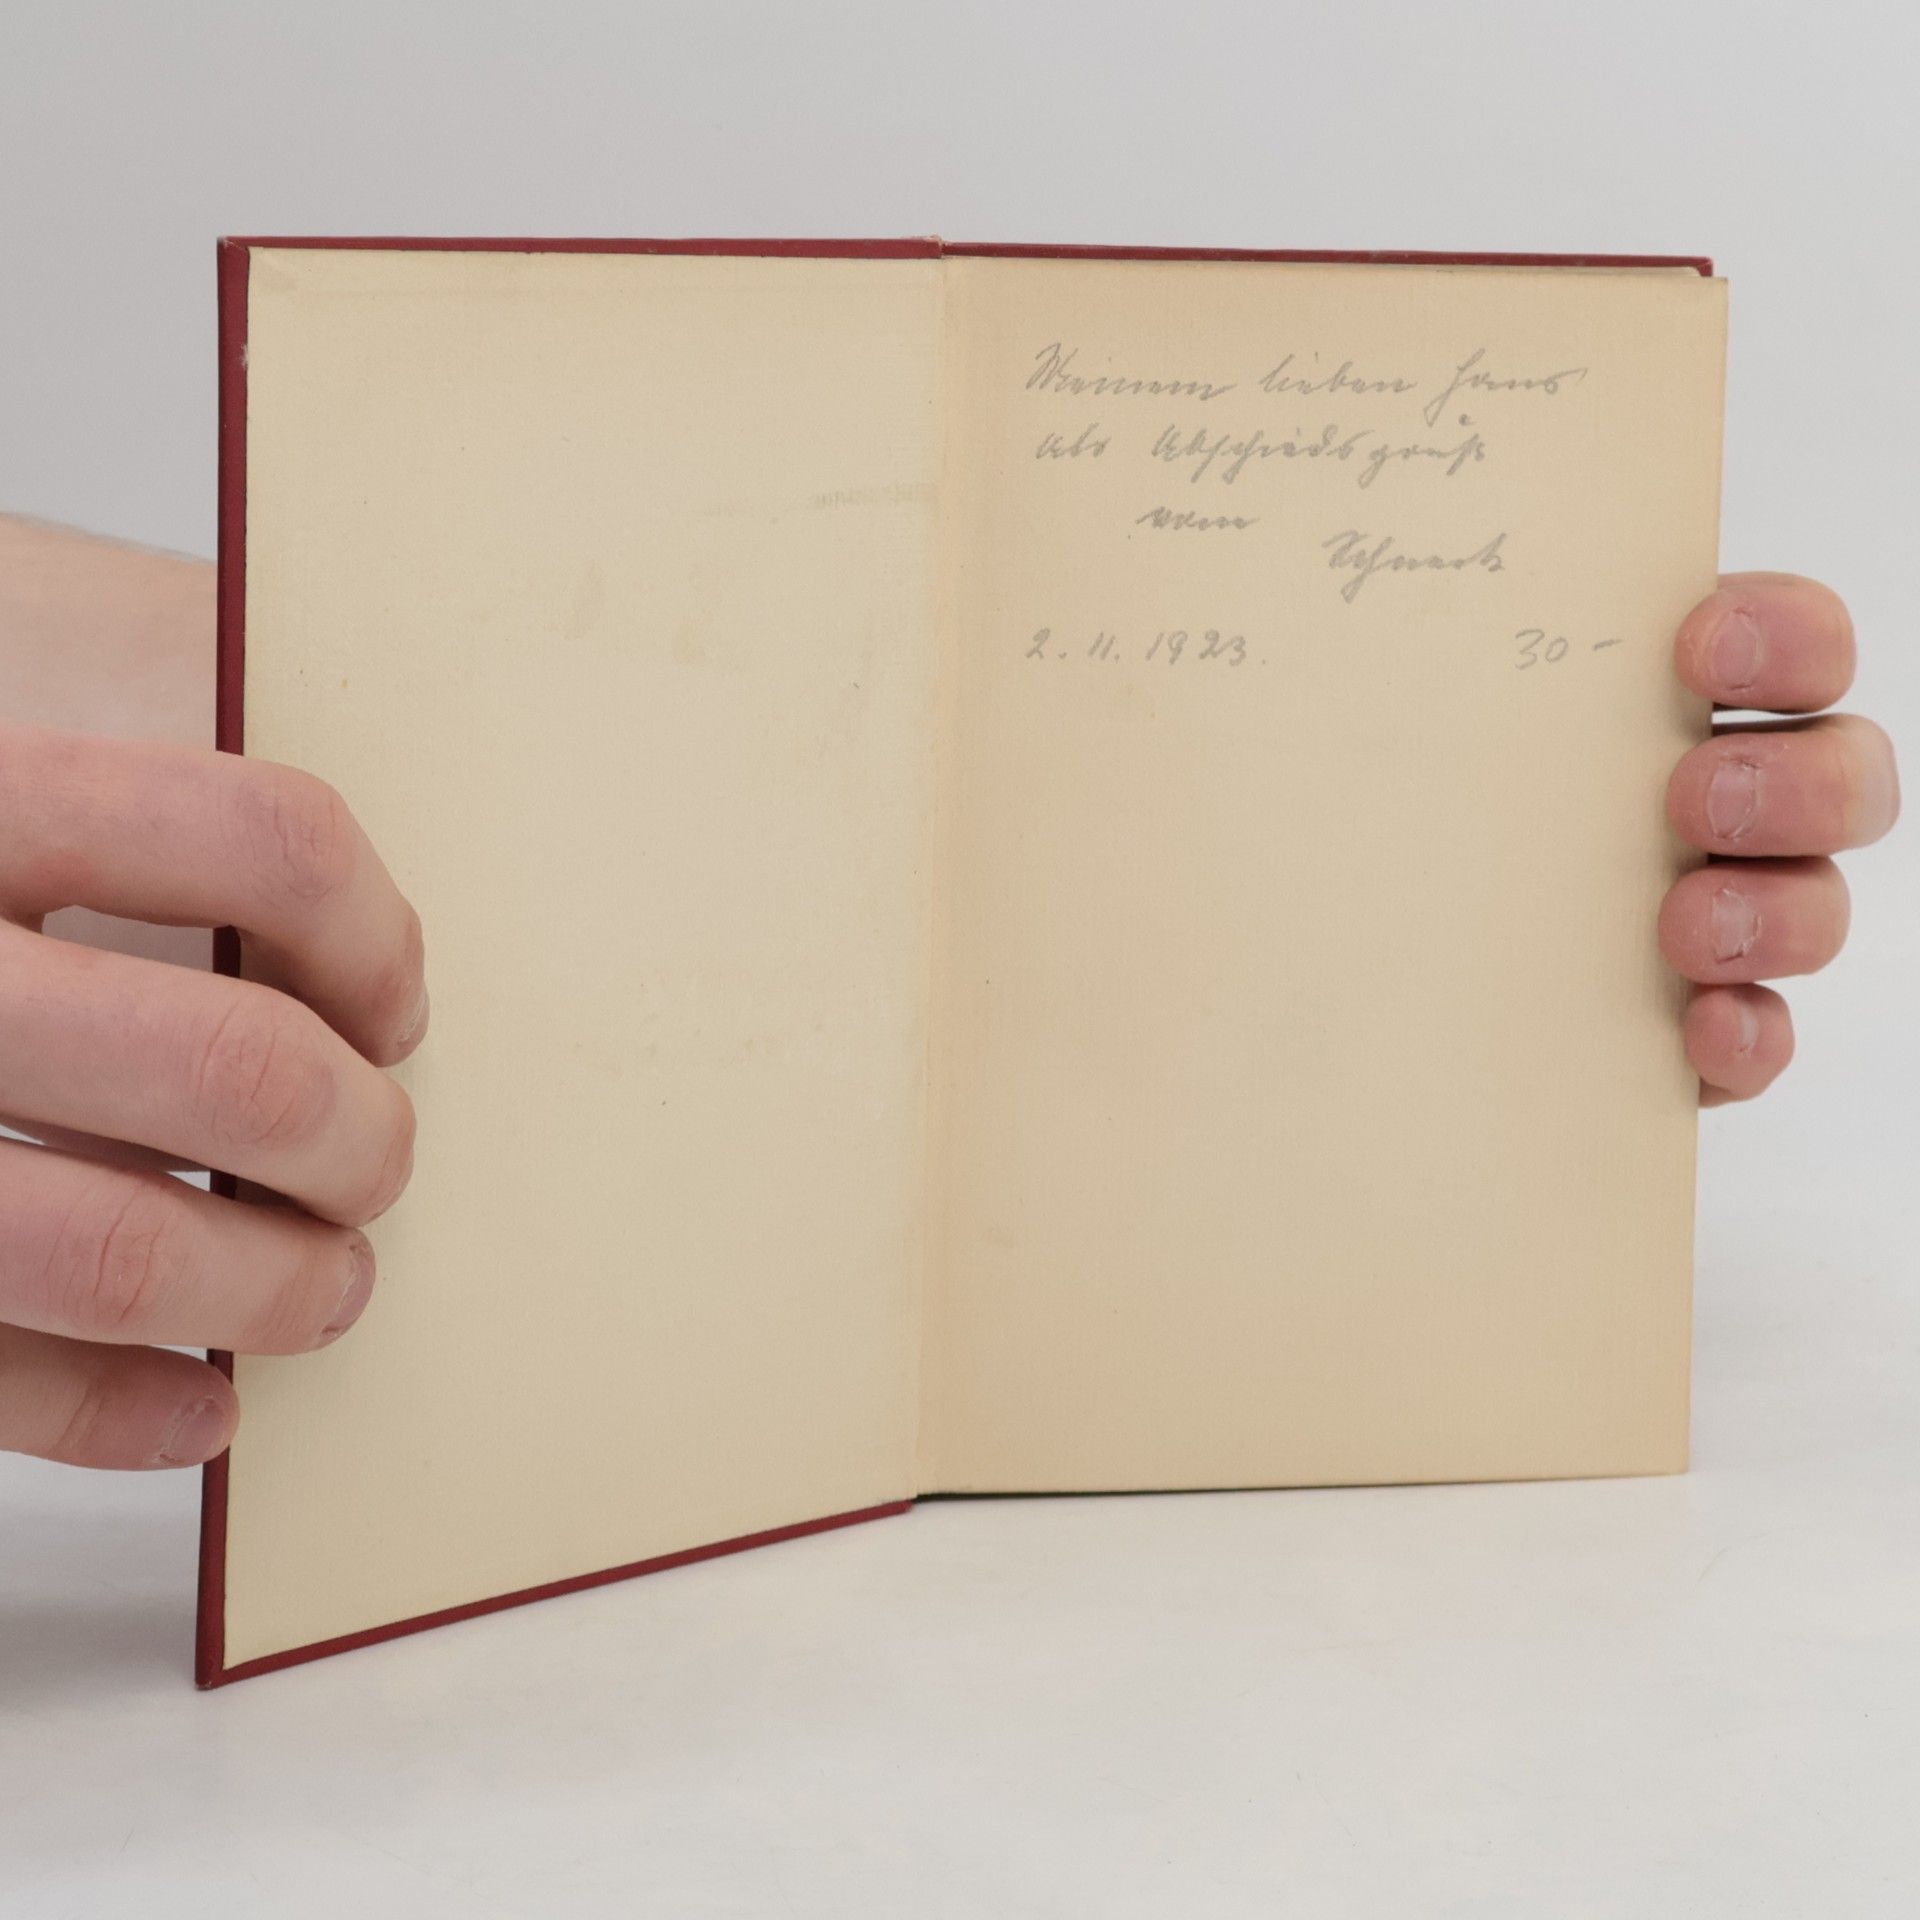 Meinem lieben Hans
als Abschiedsgruß
vom
2. 11. 1923. 30 -